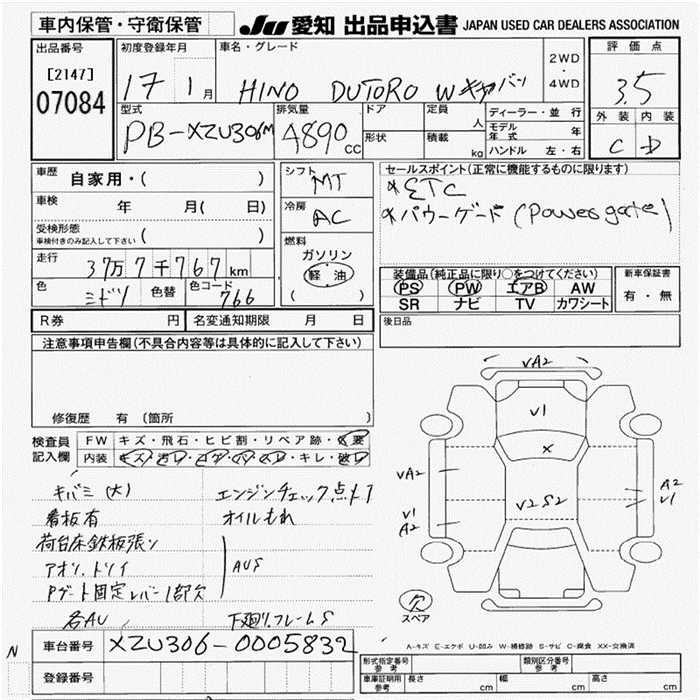 車内保管・守衛保管
JU 愛知 出品申込書 JAPAN USED CAR DEALERS ASSOCIATION
出品番号
[2147]
07084
初度登録年月
17 1月
車名・グレード
HINO DUTORO Wキャバン
2WD
・
4WD
評価点
3.5
外装 内装
C D
型式
PB-XZU306M
排気量
4890 cc
ドア
形状
定員 人
積載 kg
ディーラー・並行
モデル年式 年
ハンドル 左・右
車歴 自家用・( )
車検 年 月( 日)
受検形態
車検付きのみ記入して下さい ( )
走行 37万7千767 km
色 ミドリ 色替 色コード 766
シフト MT
冷房 AC
燃料
ガソリン
軽油
( )
セールスポイント(正常に機能するものに限ります)
*ETC
*パワーゲード (Power gate)
装備品(純正品に限り○をつけてください)
PS PW エアB AW
SR ナビ TV カワシート
新車保証書
有・無
後日品
R券 円 名変通知期限 月 日
注意事項申告欄(不具合内容等は具体的に記入して下さい)
修復歴 有 (箇所 )
検査員記入欄
FW キズ・飛石・ヒビ割・リペア跡・X要
内装 キズ・汚レ・コゲ・穴・スレ・キレ・破レ
キバミ(大) エンジンチェック点灯
看板有 オイルもれ
荷台床鉄板張り
アオリ、トリイ AUS
Pゲート固定レバー1部欠
各AU 下廻りフレームS
VA2
V1
X
VA2
V2S2
V1
A2
A2
V1
欠
スペア
A-キズ E-エクボ U-凹み W-補修跡 S-サビ C-腐食 XX-交換済
N
車台番号 XZU306-0005832
登録番号
形式指定番号 参考
類別区分番号 参考
車庫証明用 参考 長さ cm 幅 cm 高さ cm